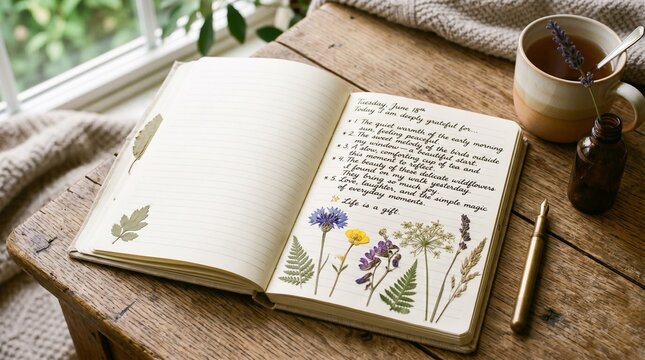 Tuesday, June 18th
Today I am deeply grateful for...
• 1. The quiet warmth of the early morning
sun, feeling peaceful.
• 2. The sweet melody of the birds outside
my window – a beautiful start.
• 3. A slow, comforting cup of tea and
this moment to reflect.
• 4. The beauty of these delicate wildflowers
I found on my walk yesterday.
They bring so much joy.
• 5. Love, laughter, and the simple magic
of everyday moments.
Life is a gift.